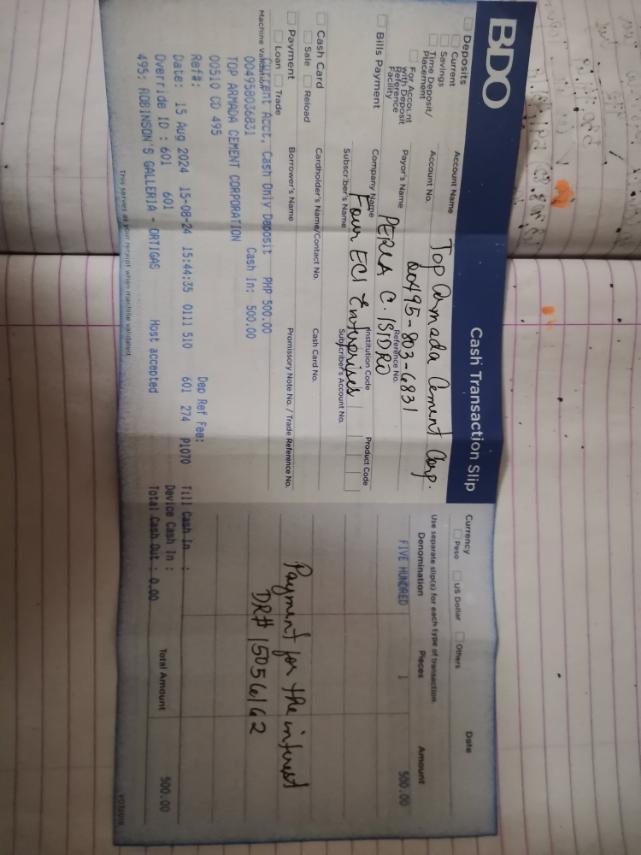 BDO
Cash Transaction Slip
Deposits
Current
Savings
Time Deposit/
Placement
For Account
with Deposit
Reference
Facility
Bills Payment
Cash Card
Sale
Reload
Payment
Loan
Trade
Account Name
Top Armada Cement Corp.
Account No.
00495-803-6831
Payor's Name
Reference No.
PERLA C. ISIDRO
Company Name
Institution Code
Product Code
Four ECI Enterprises
Subscriber's Name
Subscriber's Account No.
Cardholder's Name/Contact No.
Cash Card No.
Borrower's Name
Promissory Note No. / Trade Reference No.
Current Acct. Cash Only Deposit PHP 500.00
004958036831 Cash In: 500.00
TOP ARMADA CEMENT CORPORATION
00510 CO 495
Ref#: Dep Ref Fee:
Date: 15 Aug 2024 15-08-24 15:44:35 0111 510 601 274 P1070 Till Cash In :
Override ID : 601 601 Device Cash In :
495: ROBINSON'S GALLERIA - ORTIGAS Host accepted Total Cash Out : 0.00
This serves as your receipt when machine validated.
Currency
Peso
US Dollar
Others
Date
Use separate slip(s) for each type of transaction.
Denomination
Pieces
Amount
FIVE HUNDRED 1 500.00
Payment for the interest
DR# 15056162
Total Amount
500.00